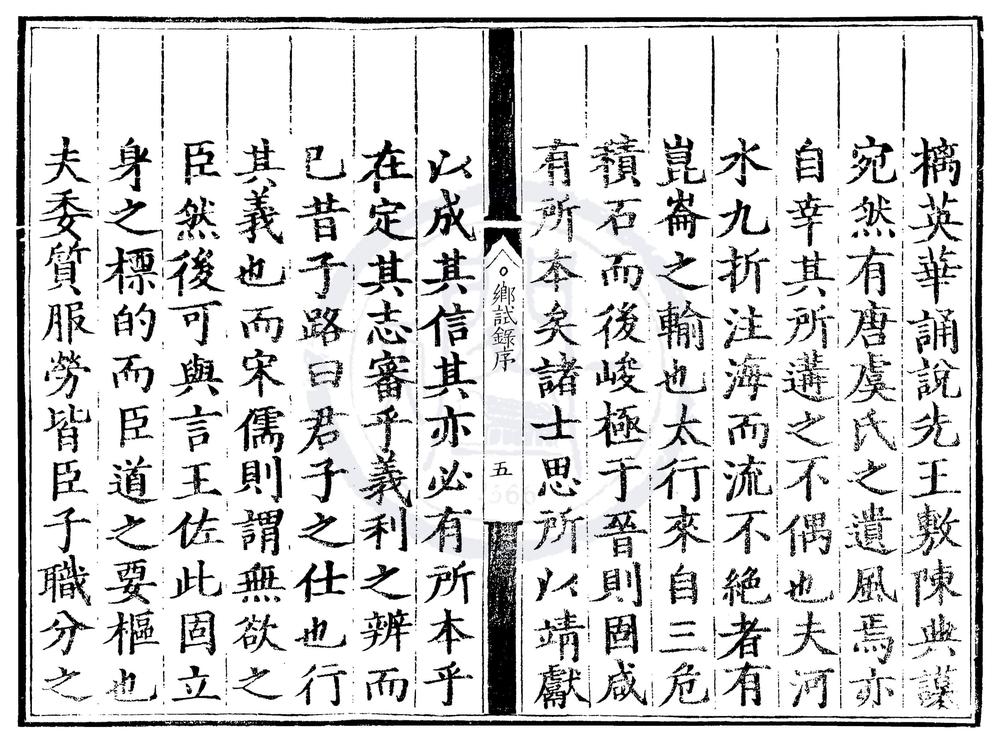 摛英華誦說先王敷陳典謨
宛然有唐虞氏之遺風焉亦
自幸其所遘之不偶也夫河
水九折注海而流不絕者有
崑崙之輸也太行來自三危
積石而後峻極于晉則固咸
有所本矣諸士思所以靖獻
鄉試錄序
五
以成其信其亦必有所本乎
在定其志審乎義利之辨而
已昔子路曰君子之仕也行
其義也而宋儒則謂無欲之
臣然後可與言王佐此固立
身之標的而臣道之要樞也
夫委質服勞皆臣子職分之